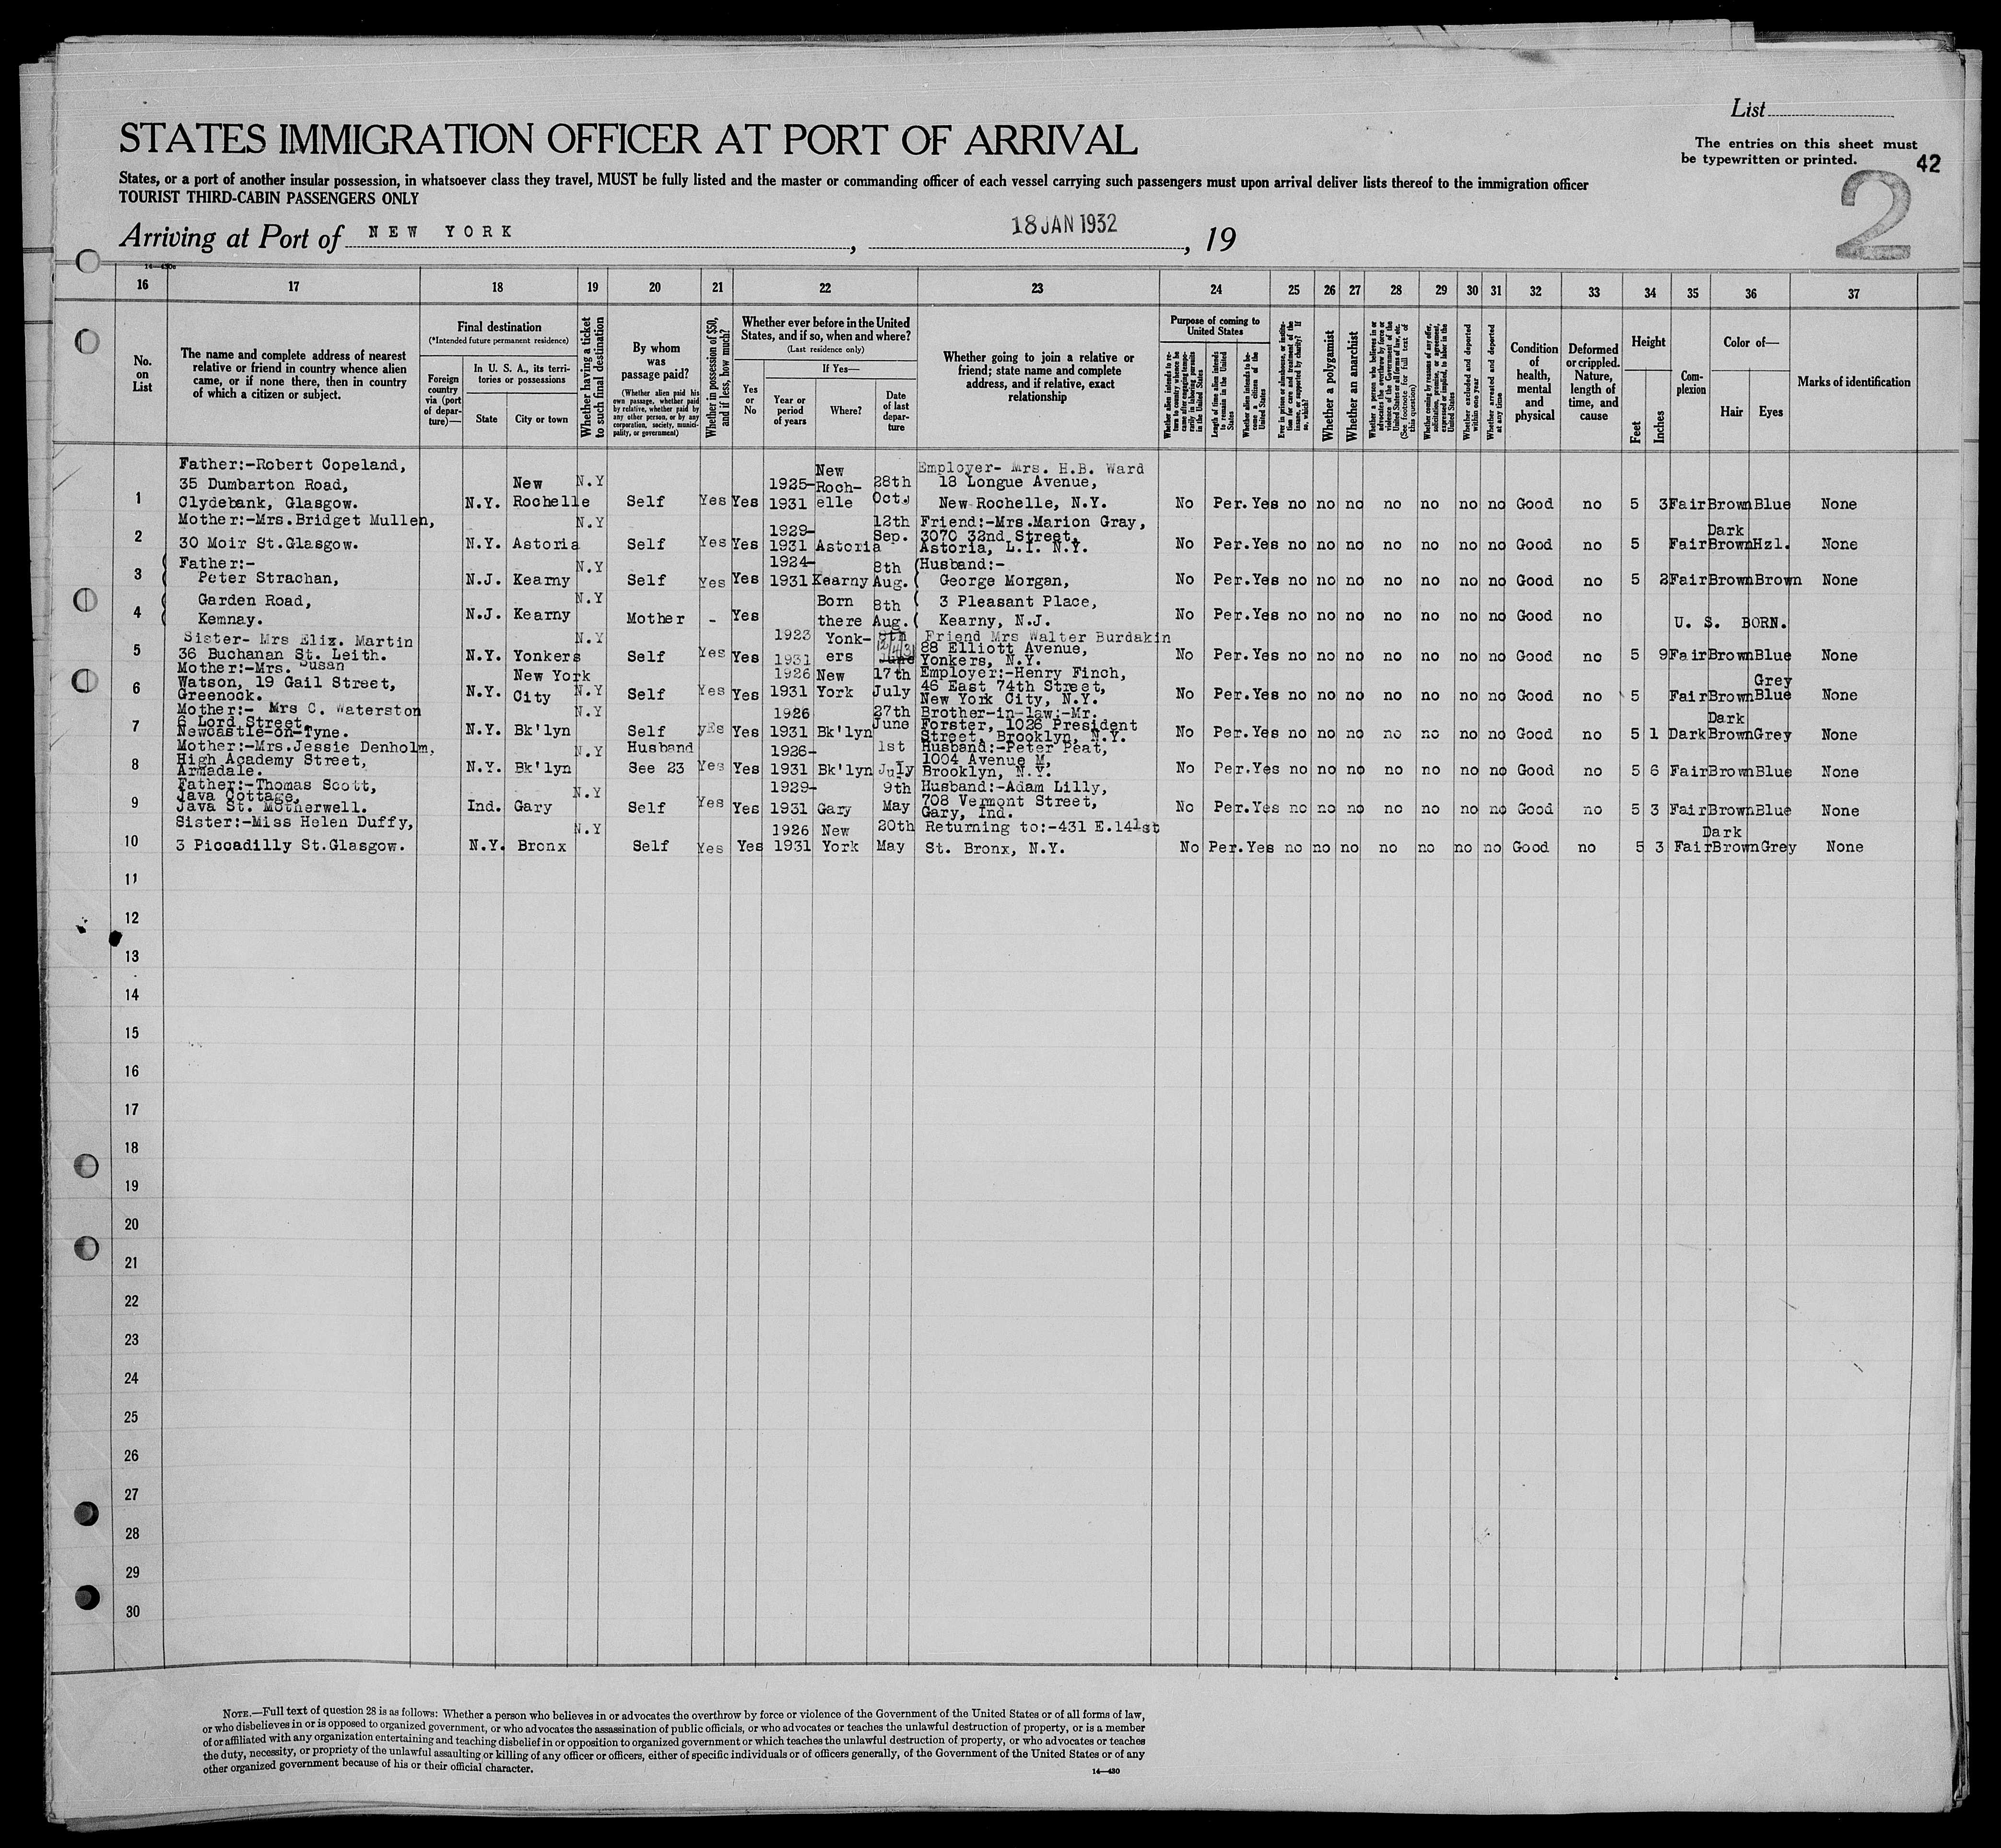 List
The entries on this sheet must
be typewritten or printed.
42
2
STATES IMMIGRATION OFFICER AT PORT OF ARRIVAL
States, or a port of another insular possession, in whatsoever class they travel, MUST be fully listed and the master or commanding officer of each vessel carrying such passengers must upon arrival deliver lists thereof to the immigration officer
TOURIST THIRD-CABIN PASSENGERS ONLY
Arriving at Port of NEW YORK, 18 JAN 1932, 19
16 17 18 19 20 21 22 23 24 25 26 27 28 29 30 31 32 33 34 35 36 37
No. on List
The name and complete address of nearest
relative or friend in country whence alien
came, or if none there, then in country
of which a citizen or subject.
Final destination
(*Intended future permanent residence)
Foreign country via (port of departure)—
In U. S. A., its territories or possessions
State
City or town
Whether having a ticket to such final destination
By whom was passage paid?
(Whether alien paid his own passage, whether paid by relative, whether paid by any other person, or by any corporation, society, municipality, or government)
Whether in possession of $50, and if less, how much?
Whether ever before in the United States, and if so, when and where?
(Last residence only)
Yes or No
If Yes—
Year or period of years
Where?
Date of last departure
Whether going to join a relative or
friend; state name and complete
address, and if relative, exact
relationship
Purpose of coming to United States
Length of time alien intends to remain in the United States
Whether alien intends to become a citizen of the United States
Whether a polygamist
Whether an anarchist
Whether excluded and deported within one year
Whether arrested and deported at any time
Condition of health, mental and physical
Deformed or crippled. Nature, length of time, and cause
Height
Feet
Inches
Complexion
Color of—
Hair
Eyes
Marks of identification
1 Father:-Robert Copeland, 35 Dumbarton Road, Clydebank, Glasgow. N.Y. New Rochelle N.Y Self Yes Yes 1925-1931 New Roch-elle 28th Oct. Employer- Mrs. H.B. Ward 18 Longue Avenue, New Rochelle, N.Y. No Per. Yes no no no no no no no Good no 5 3 Fair Brown Blue None
2 Mother:-Mrs.Bridget Mullen, 30 Moir St.Glasgow. N.Y. Astoria N.Y Self Yes Yes 1929-1931 Astoria 12th Sep. Friend:-Mrs.Marion Gray, 3070 32nd Street, Astoria, L.I. N.Y. No Per. Yes no no no no no no no Good no 5 Fair Dark Brown Hzl. None
3 Father:- Peter Strachan, N.J. Kearny N.Y Self Yes Yes 1924-1931 Kearny 8th Aug. Husband:- George Morgan, No Per. Yes no no no no no no no Good no 5 2 Fair Brown Brown None
4 Garden Road, Kemnay. N.J. Kearny N.Y Mother - Yes Born there 8th Aug. 3 Pleasant Place, Kearny, N.J. No Per. Yes no no no no no no no Good no U. S. BORN.
5 Sister- Mrs Eliz. Martin 36 Buchanan St. Leith. N.Y. Yonkers N.Y Self Yes Yes 1923 1931 Yonk-ers June Friend Mrs Walter Burdakin 88 Elliott Avenue, Yonkers, N.Y. No Per. Yes no no no no no no no Good no 5 9 Fair Brown Blue None
6 Mother:-Mrs. Susan Watson, 19 Gail Street, Greenock. N.Y. New York City N.Y Self Yes Yes 1926 1931 New York 17th July Employer:-Henry Finch, 46 East 74th Street, New York City, N.Y. No Per. Yes no no no no no no no Good no 5 Fair Brown Grey Blue None
7 Mother:- Mrs C. Waterston 6 Lord Street, Newcastle-on-Tyne. N.Y. Bk'lyn N.Y Self yes Yes 1926 1931 Bk'lyn 27th June Brother-in-law:-Mr. Forster, 1026 President Street, Brooklyn, N.Y. No Per. Yes no no no no no no no Good no 5 1 Dark Dark Brown Grey None
8 Mother:-Mrs.Jessie Denholm, High Academy Street, Armadale. N.Y. Bk'lyn N.Y Husband See 23 Yes Yes 1926-1931 Bk'lyn 1st July Husband:-Peter Peat, 1004 Avenue M, Brooklyn, N.Y. No Per. Yes no no no no no no no Good no 5 6 Fair Brown Blue None
9 Father:-Thomas Scott, Java Cottage, Java St. Motherwell. Ind. Gary N.Y Self Yes Yes 1929-1931 Gary 9th May Husband:-Adam Lilly, 708 Vermont Street, Gary, Ind. No Per. Yes no no no no no no no Good no 5 3 Fair Brown Blue None
10 Sister:-Miss Helen Duffy, 3 Piccadilly St.Glasgow. N.Y. Bronx N.Y Self Yes Yes 1926 1931 New York 20th May Returning to:-431 E.141st St. Bronx, N.Y. No Per. Yes no no no no no no no Good no 5 3 Fair Dark Brown Grey None
11
12
13
14
15
16
17
18
19
20
21
22
23
24
25
26
27
28
29
30
NOTE.—Full text of question 28 is as follows: Whether a person who believes in or advocates the overthrow by force or violence of the Government of the United States or of all forms of law,
or who disbelieves in or is opposed to organized government, or who advocates the assassination of public officials, or who advocates or teaches the unlawful destruction of property, or is a member
of or affiliated with any organization entertaining and teaching disbelief in or opposition to organized government or which teaches the unlawful destruction of property, or who advocates or teaches
the duty, necessity, or propriety of the unlawful assaulting or killing of any officer or officers, either of specific individuals or of officers generally, of the Government of the United States or of any
other organized government because of his or their official character.
14—430